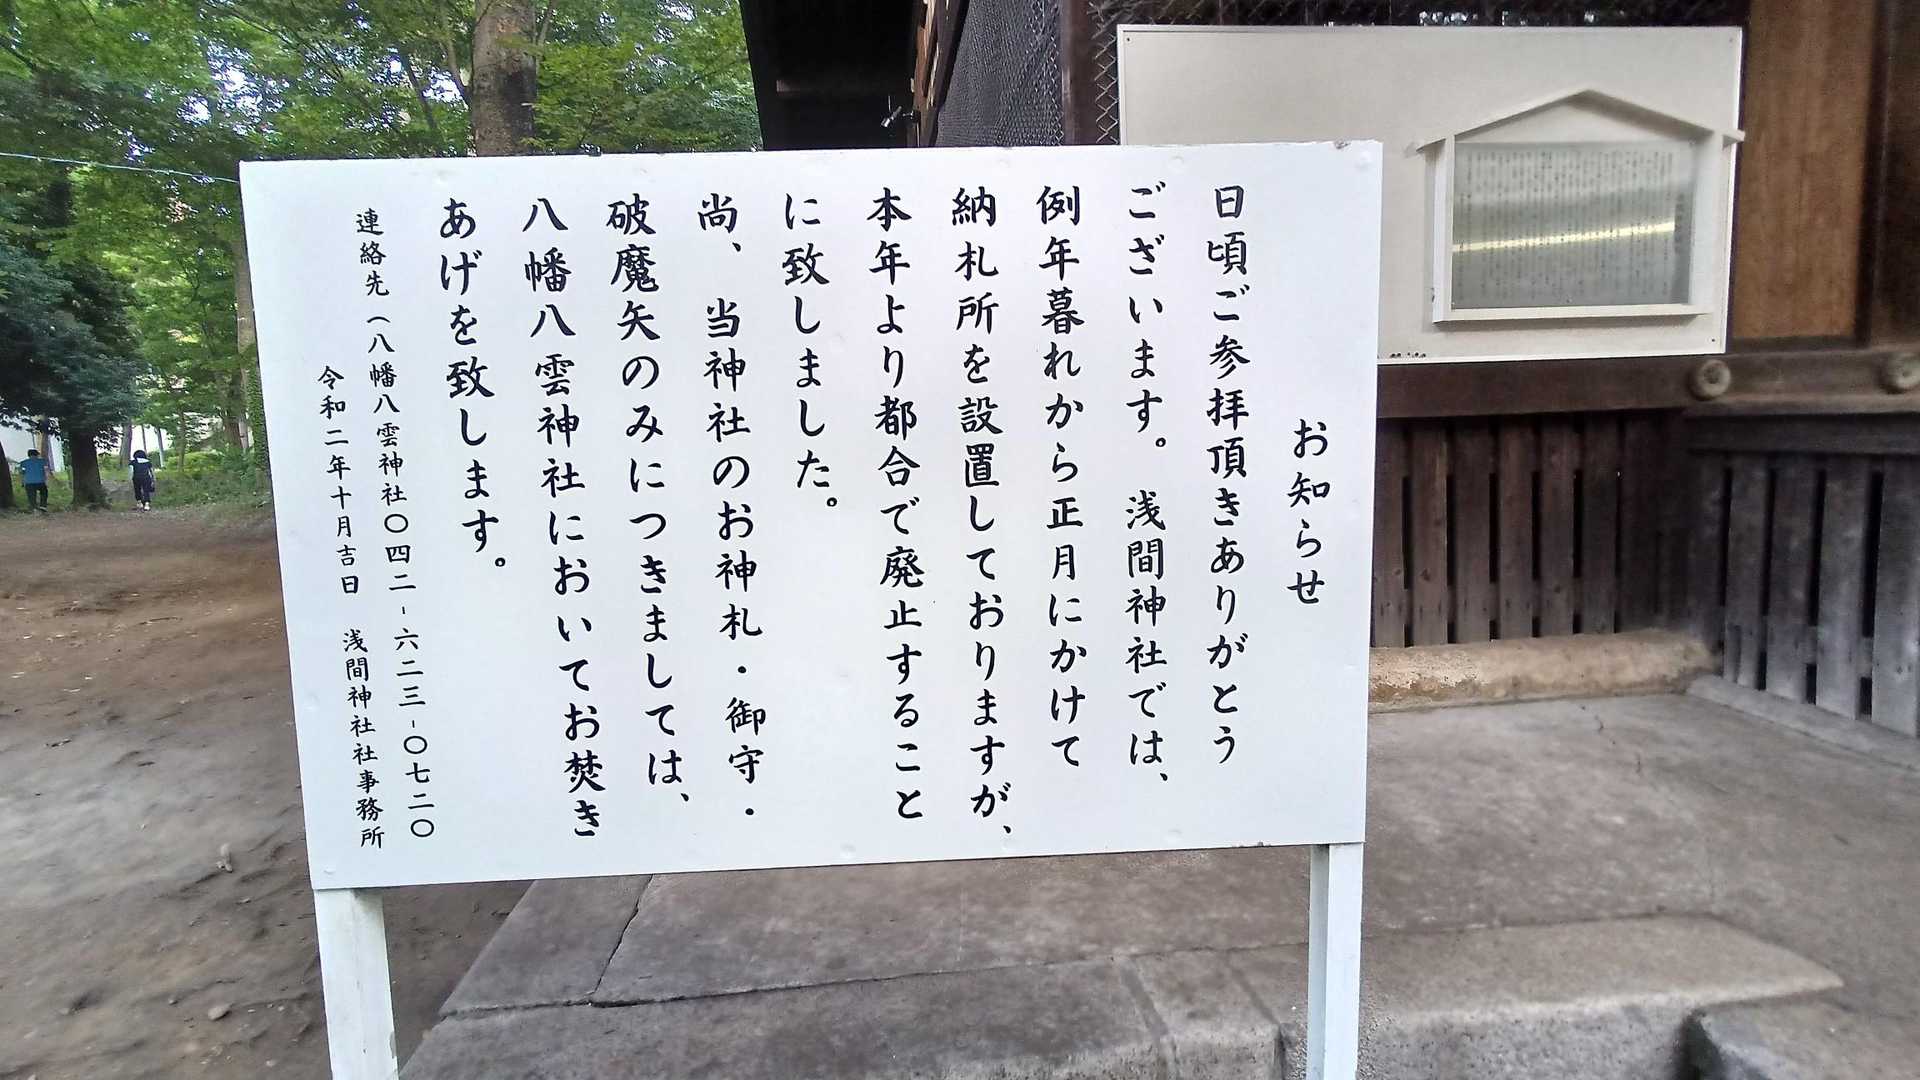 お知らせ
日頃ご参拝頂きありがとう
ございます。浅間神社では、
例年暮れから正月にかけて
納札所を設置しておりますが、
本年より都合で廃止すること
に致しました。
尚、当神社のお神札・御守・
破魔矢のみにつきましては、
八幡八雲神社においてお焚き
あげを致します。
連絡先（八幡八雲神社〇四二-六二三-〇七二〇
令和二年十月吉日　浅間神社社事務所